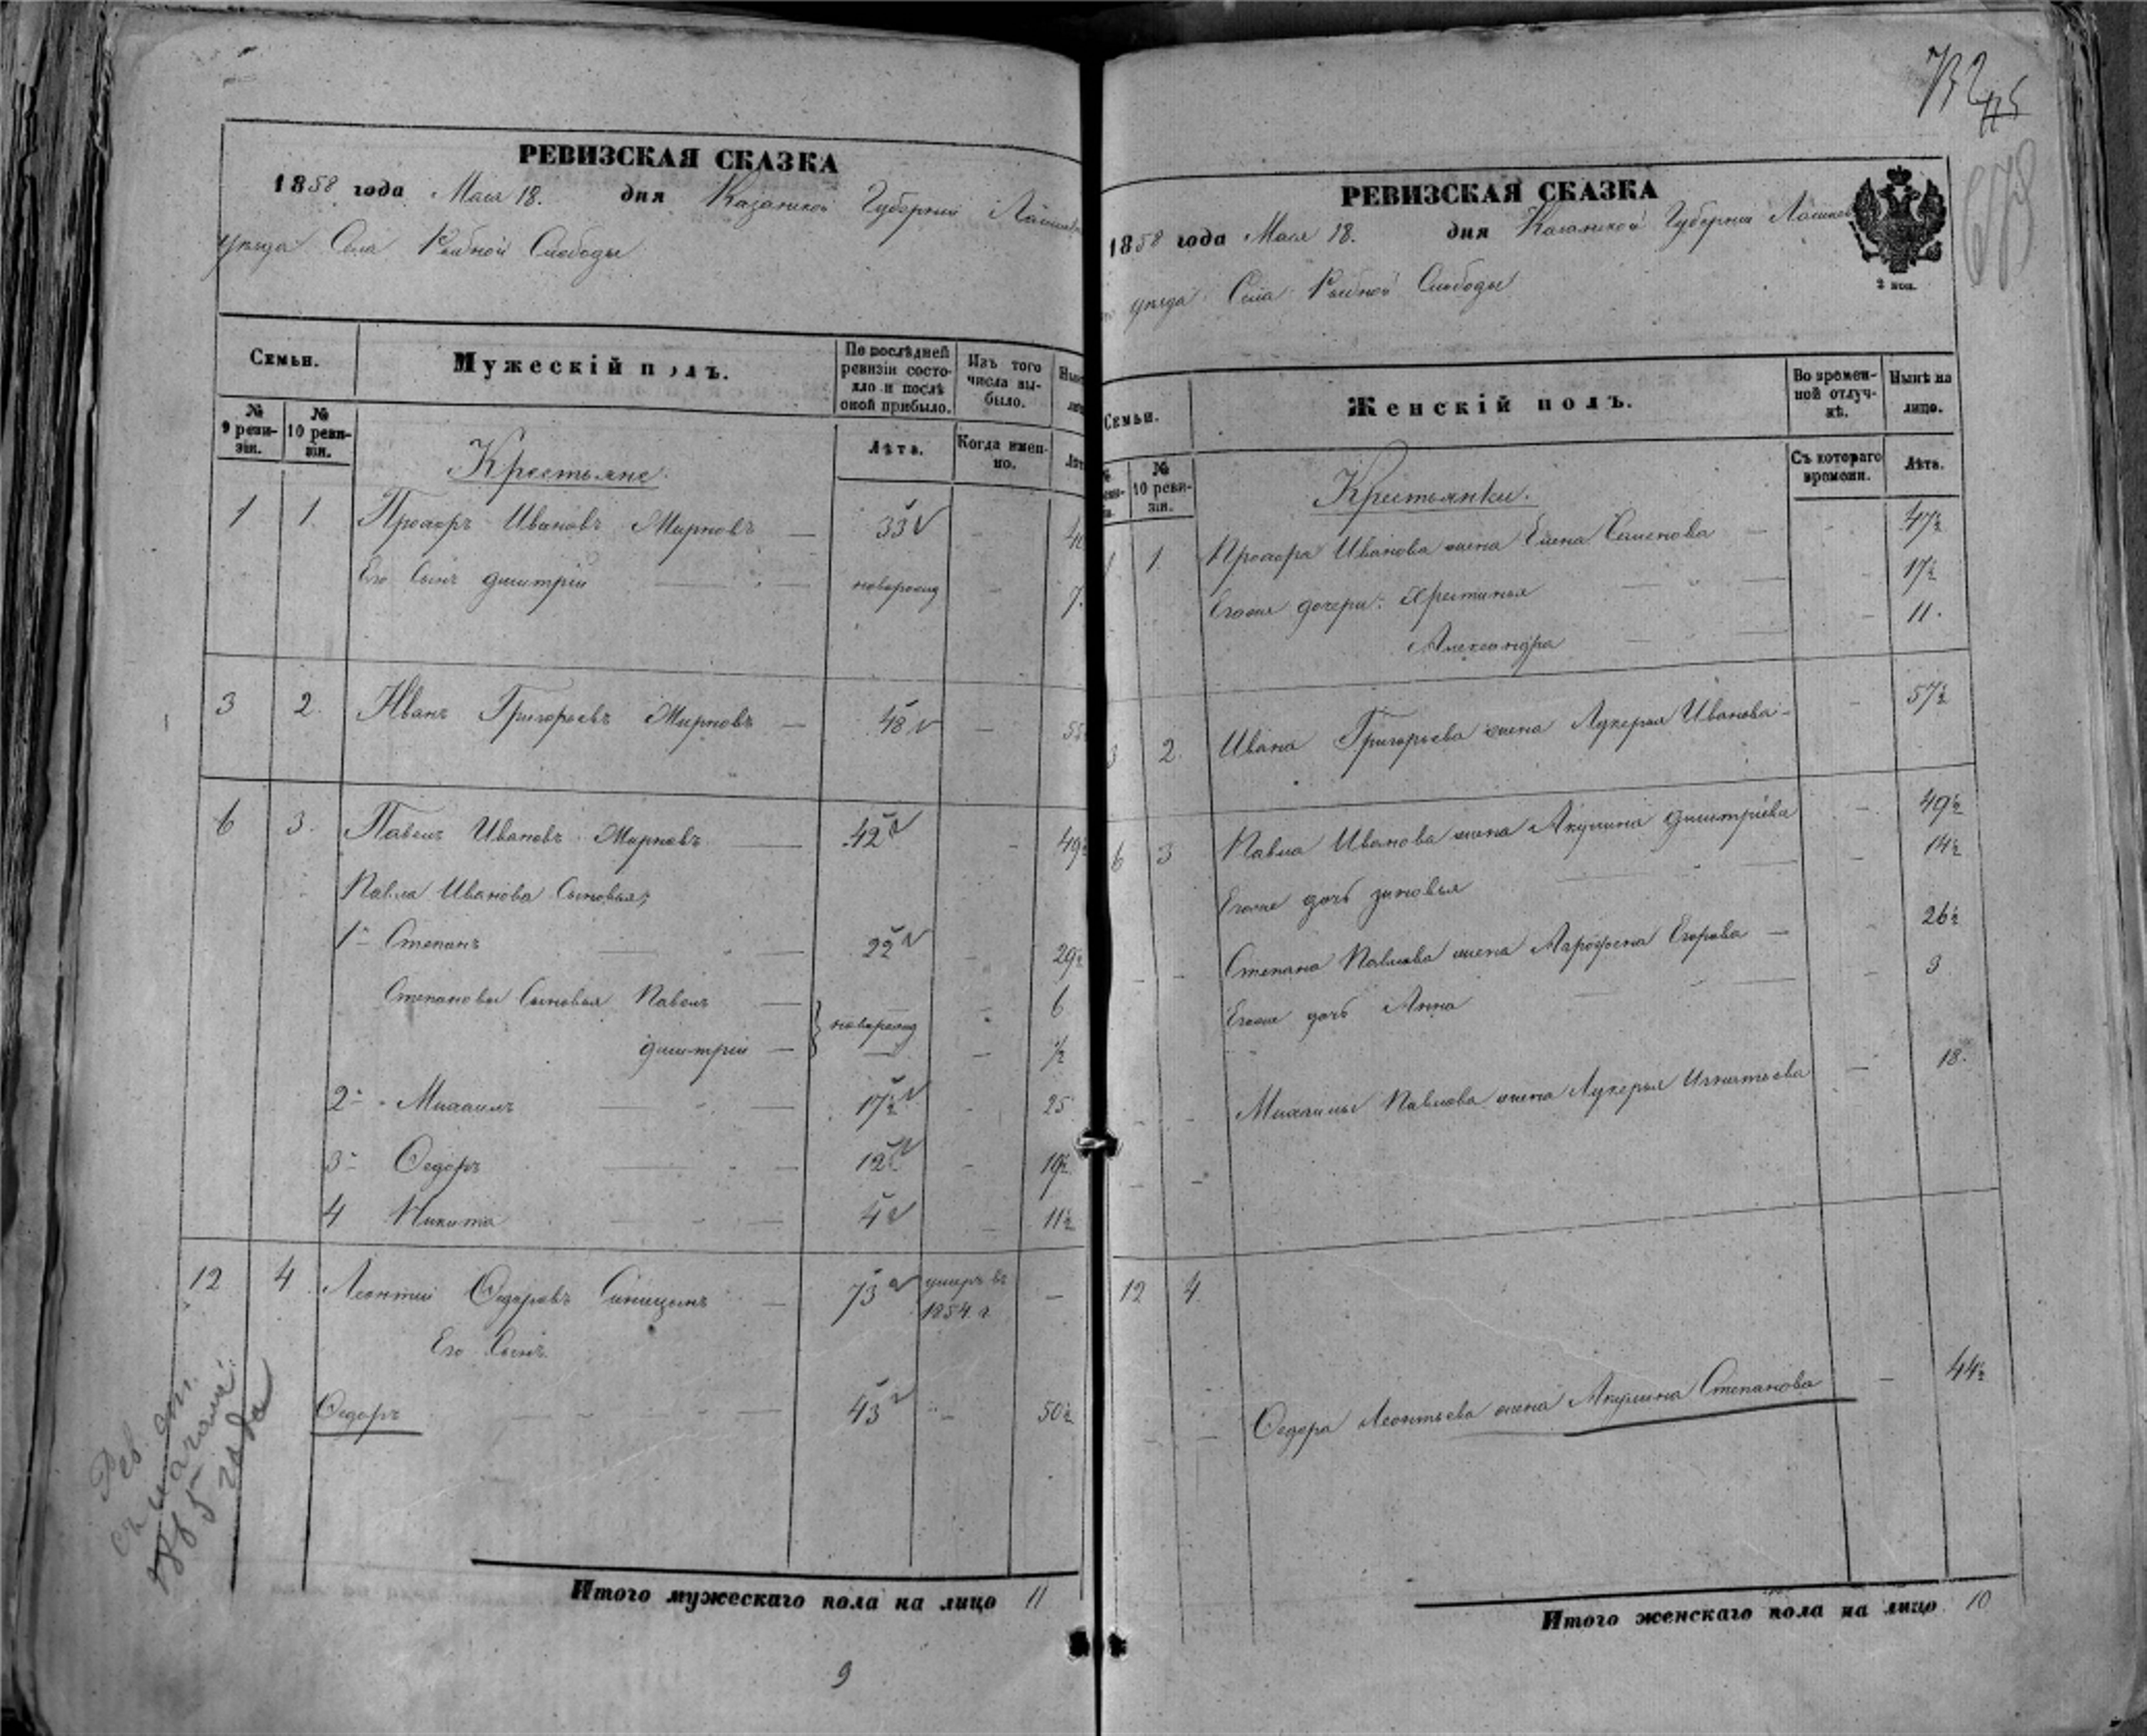 РЕВИЗСКАЯ СКАЗКА
1858 года Мая 18. дня Казанской Губернiи Лаишев
уѣзда Села Рыбной Слободы
Семьи.
Мужескiй полъ.
По послѣдней ревизiи состояло и послѣ оной прибыло.
Изъ того числа выбыло.
№ 9 ревизiи.
№ 10 ревизiи.
Лѣта.
Когда именно.
Крестьяне.
1 1. Прохоръ Ивановъ Мирновъ — 33½ -
Его Сынъ Дмитрiй — новорожд - 7.
3 2. Иванъ Григорьевъ Мирновъ — 48 —
6 3. Павелъ Ивановъ Мирновъ — 42 - 49½
Павла Иванова Сыновья;
1й Степанъ — 22 - 29½
Степановы Сыновья Павелъ — новорожд - 6
Дмитрiй — — ½
2й Михаилъ — 17½ - 25
3й Ѳедоръ — 12 - 19½
4 Никита — 4 - 11½
12 4 Леонтiй Ѳедоровъ Синицынъ — 73 умеръ въ 1854. г. —
Его Сынъ
Ѳедоръ — 43 - 50½
Итого мужескаго пола на лицо 11
9
732
673
РЕВИЗСКАЯ СКАЗКА
1858 года Мая 18. дня Казанской Губернiи Лаишев
уѣзда Села Рыбной Слободы
2 коп.
Семьи.
Женскiй полъ.
Во временной отлучкѣ.
Нынѣ на лицо.
№ 10 ревизiи.
Съ котораго времени.
Лѣта.
Крестьянки.
1 1. Прохора Иванова жена Елена Семенова — - 47½
Егоже дочери: Хрестинья — - 17½
Александра — - 11.
3 2. Ивана Григорьева жена Лукерья Иванова - - 57½
6 3 Павла Иванова жена Акулина Дмитрiева - 49½
Егоже дочь Зиновья — - 14½
Степана Павлова жена Марфа Егорова — - 26½
Егоже дочь Анна — - 3
Михаилы Павлова жена Лукерья Игнатьева — 18.
12 4.
Ѳедора Леонтьева жена Акулина Степанова - 44½
Итого женскаго пола на лицо 10